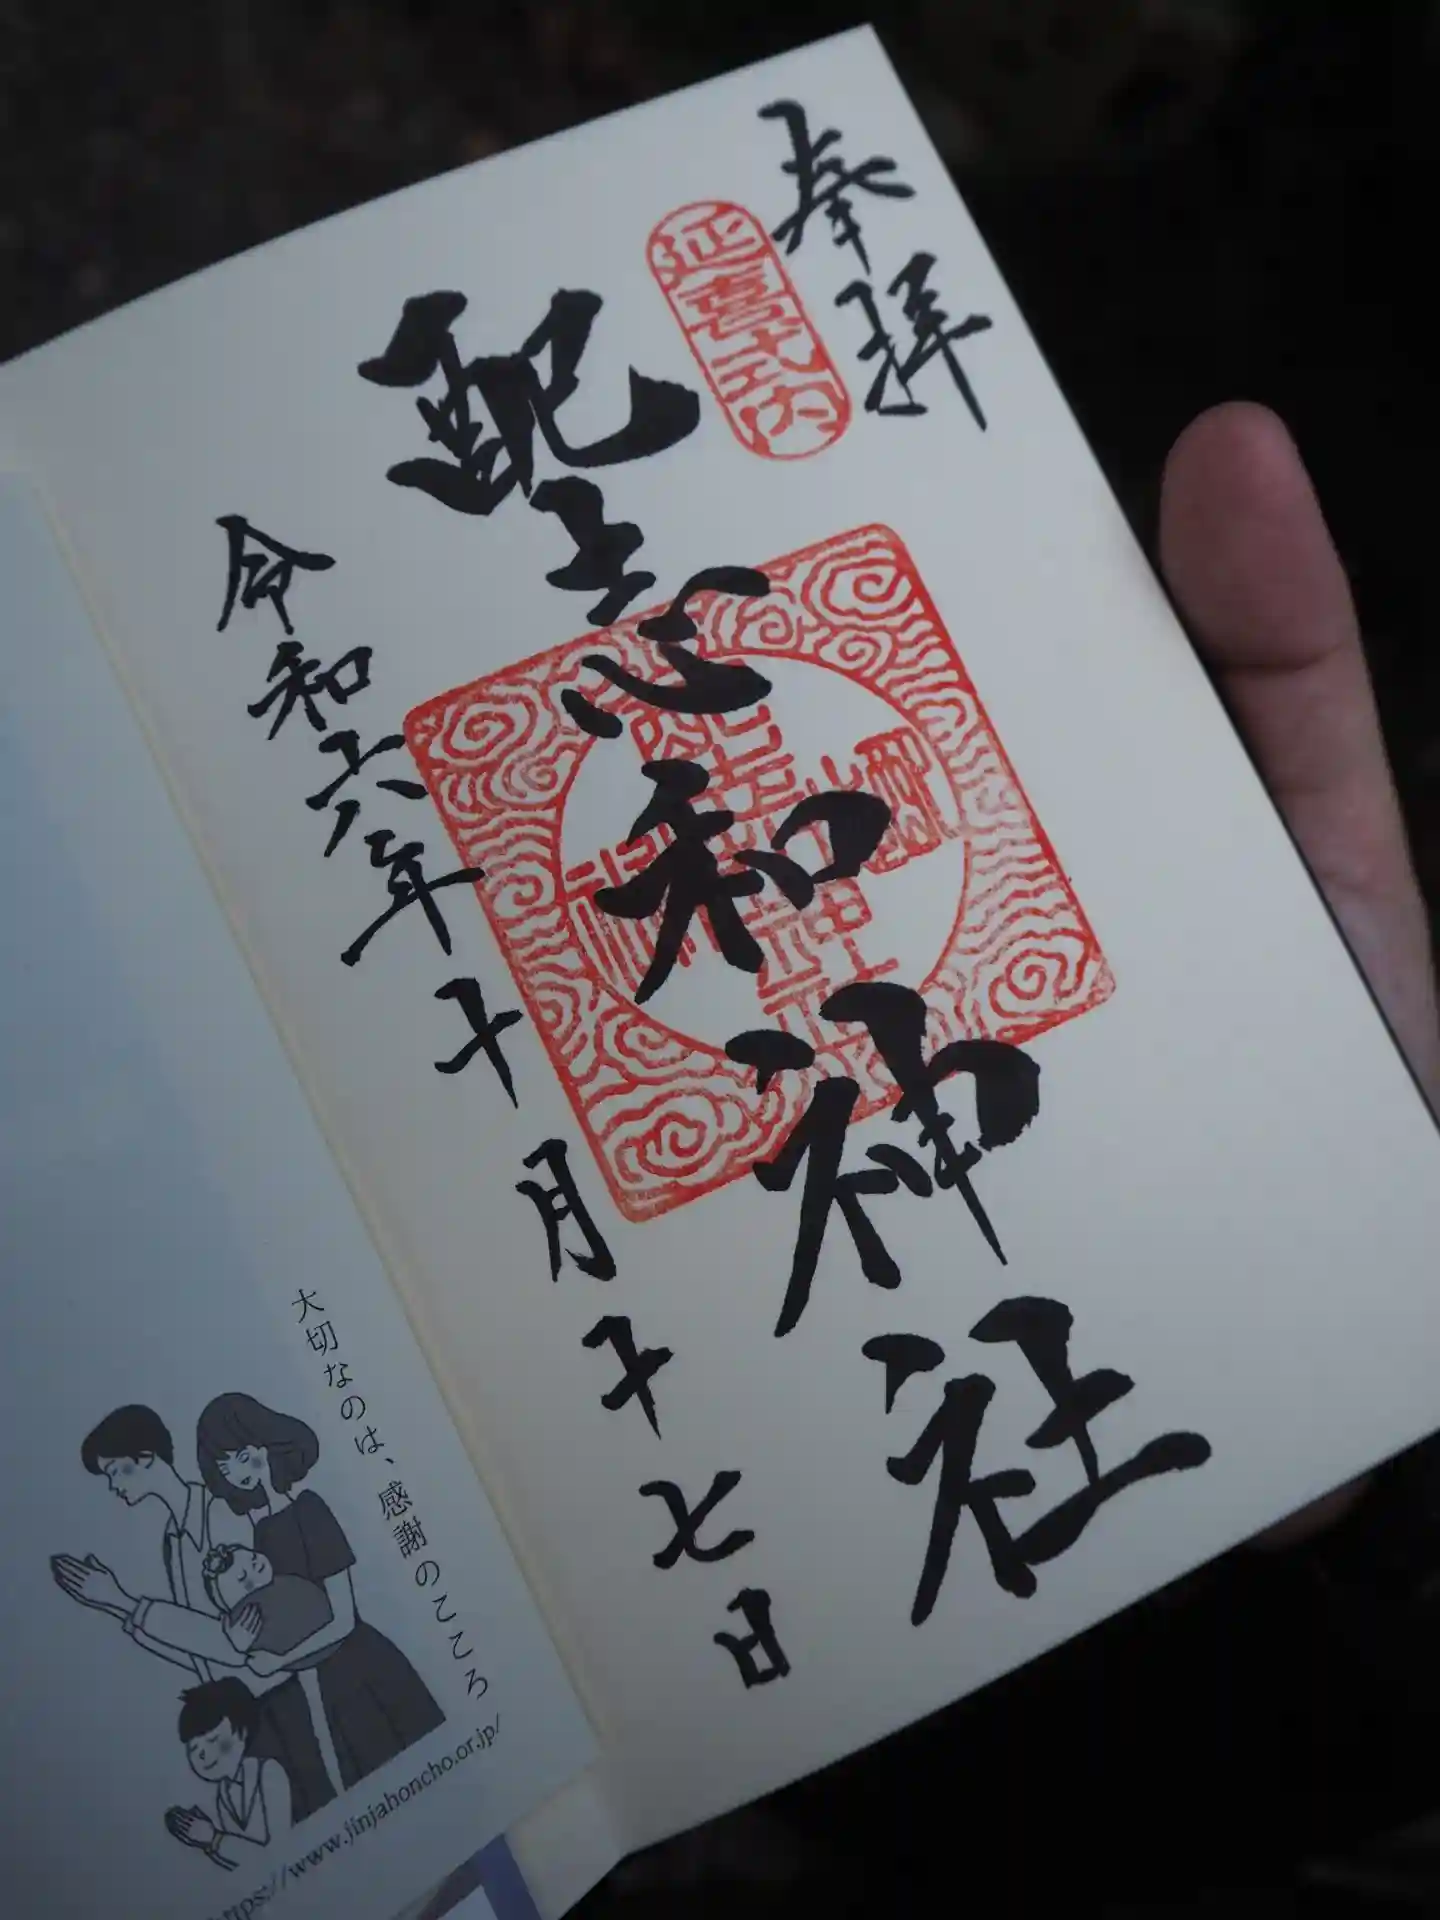 奉拝
延喜式内
配志和神社
令和六年十月十七日
大切なのは、感謝のこころ
https://www.jinjahoncho.or.jp/